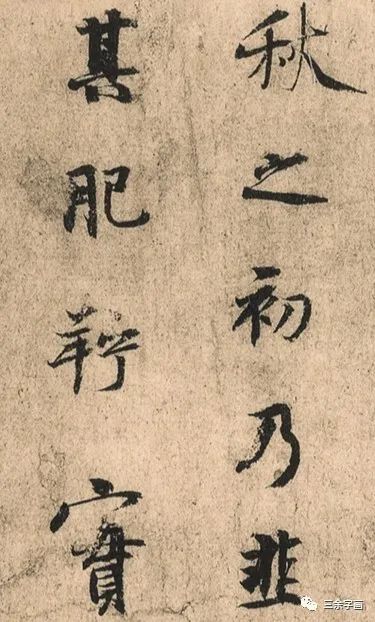 秋之初乃韭
其肥羜實
三余字画